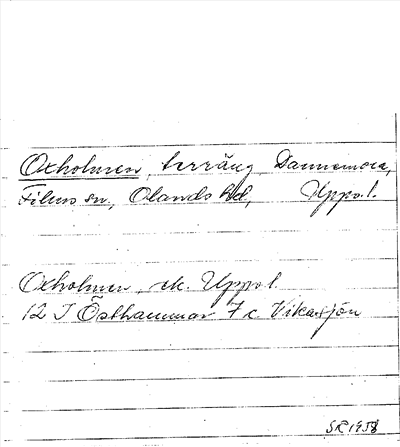 Oxholmen, terräng, Dannemora,
Films sn, Olands hd, Upps.l.
Oxholmen, ek. Uppsl.
12 I Östhammar 7 c Vikasjön
SR 1958